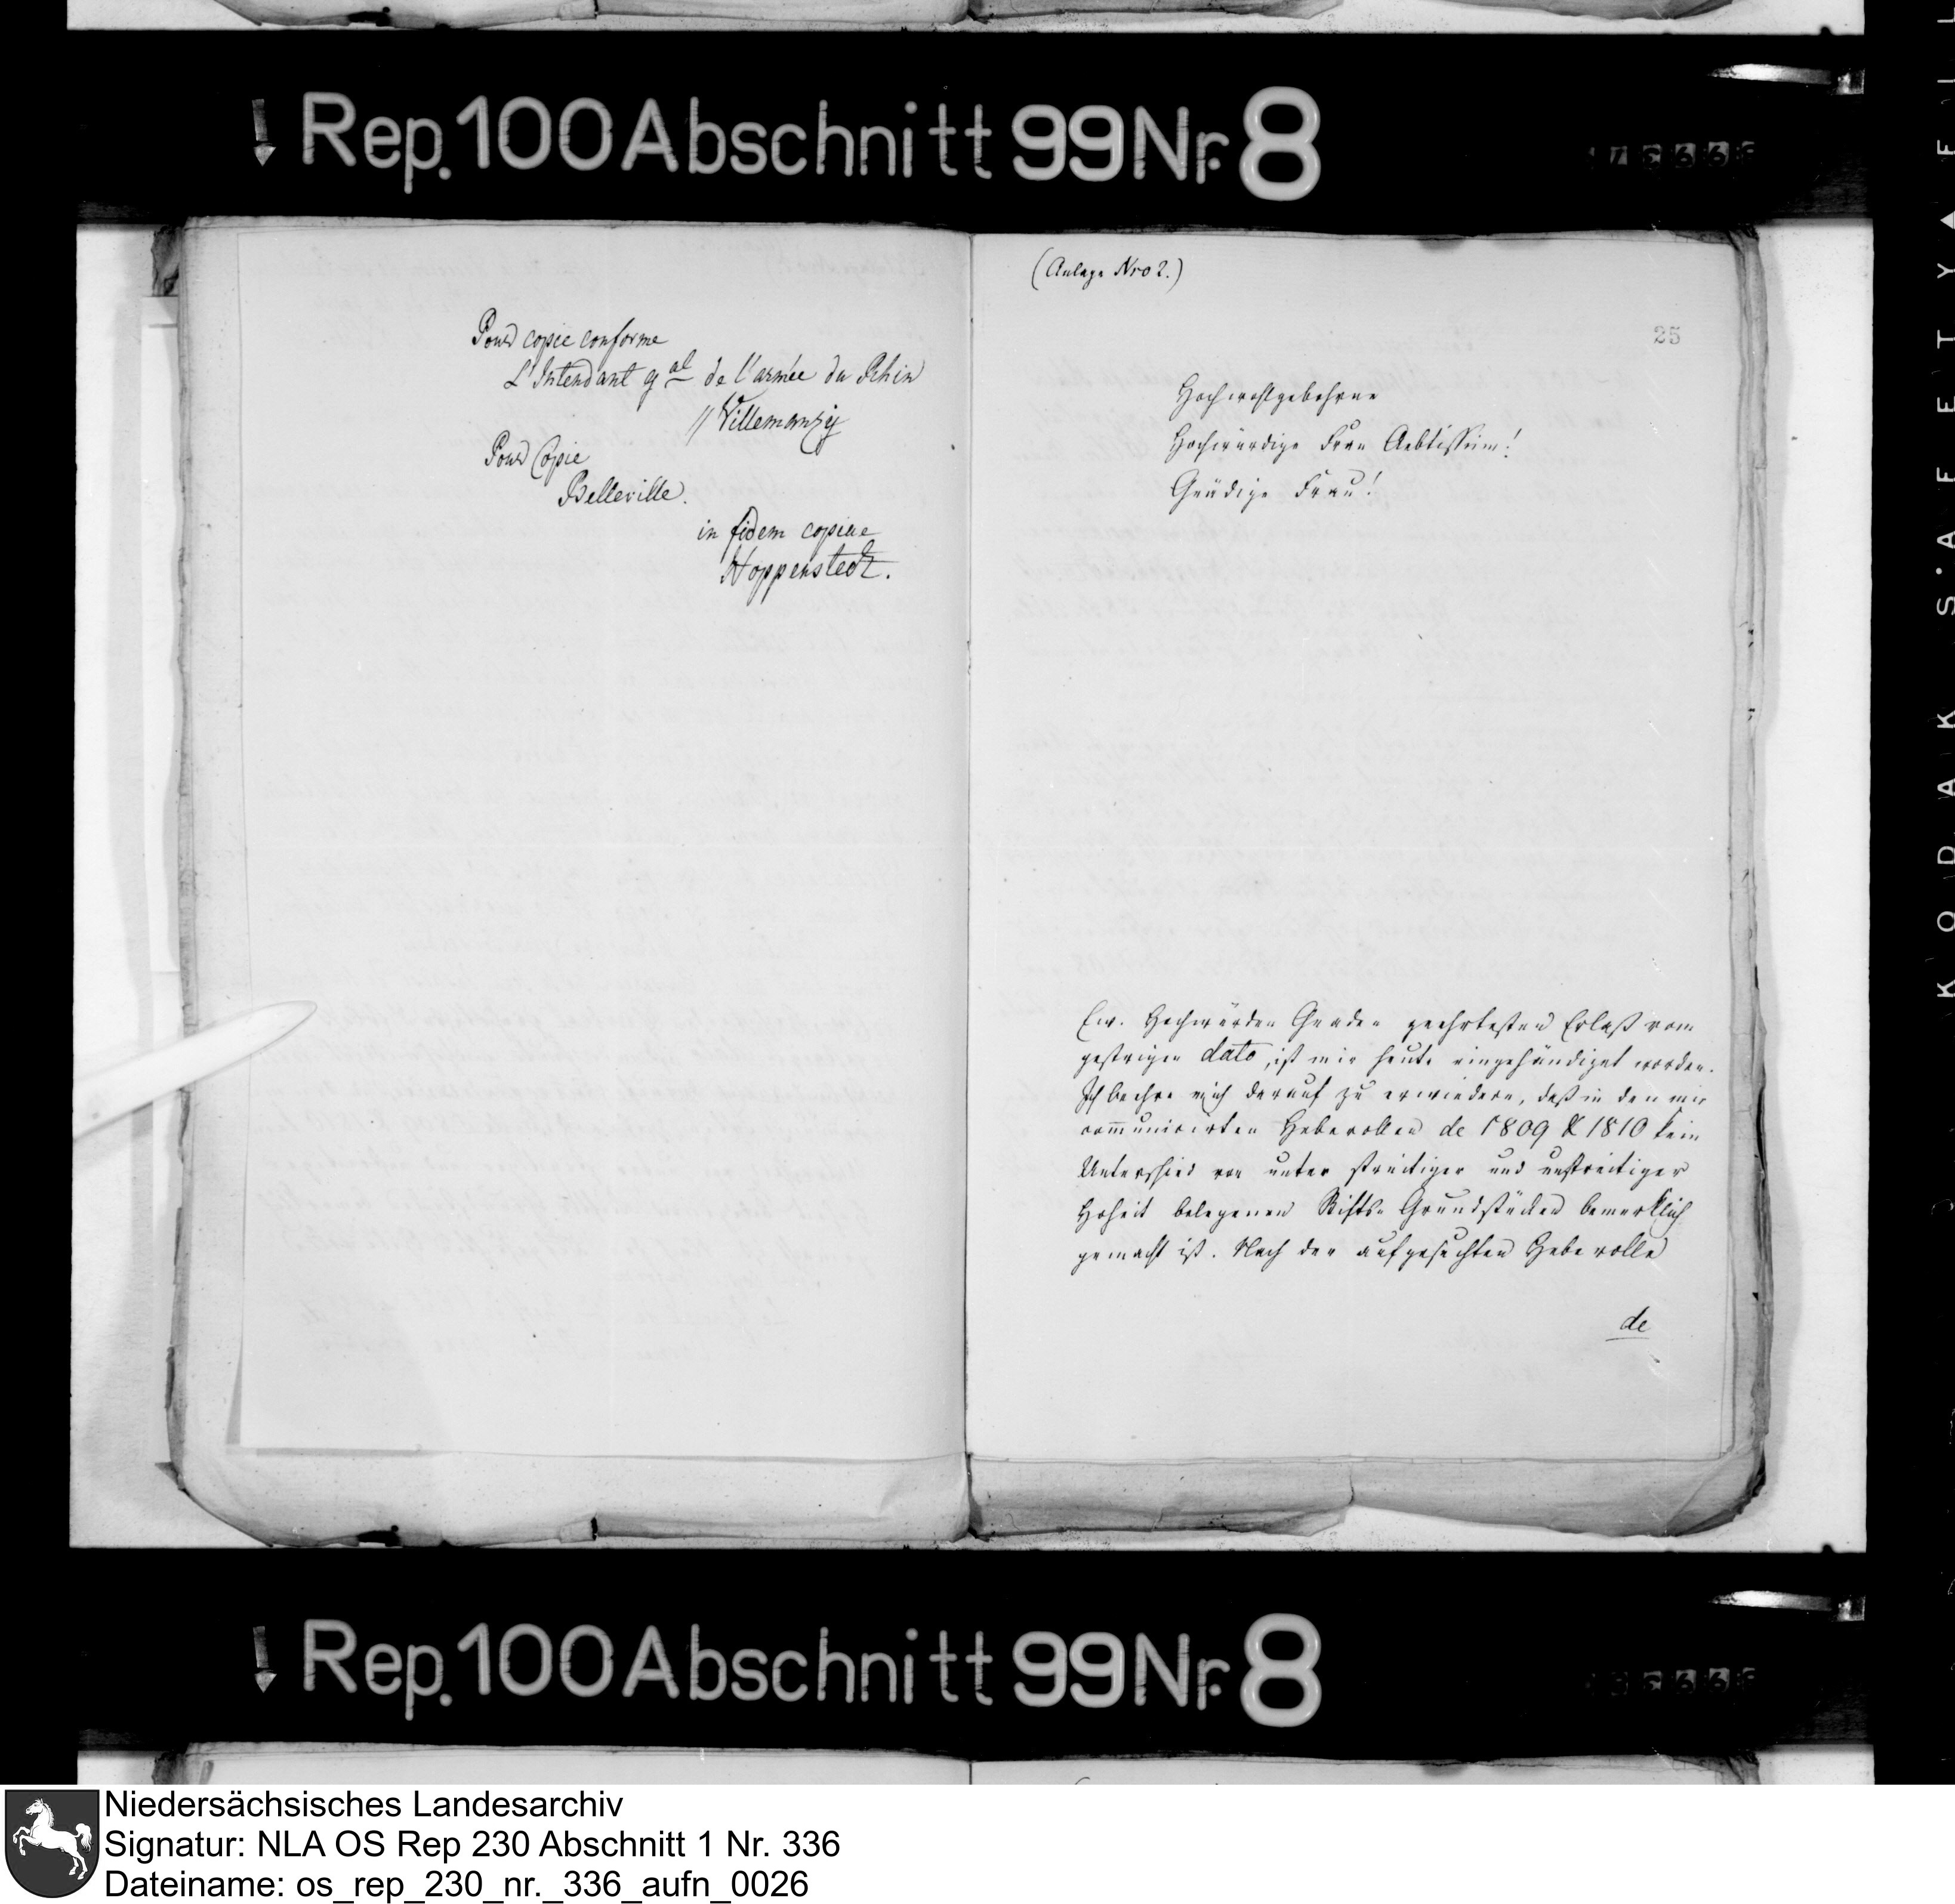 Rep. 100 Abschnitt 99 Nr. 8
Pour copie conforme
L'Intendant gal de l'armée du Rhin
// Villemanzÿ
Pour Copie
Belleville.
in fidem copiae
Hoppenstedt.
(Anlage Nro 2.)
25
Hochwohlgebohrne
Hochwürdige Frau Aebtissin!
Gnädige Frau!
Ew. Hochwürden Gnaden geehrtesten Erlaß vom
gestrigen dato, ist mir heute eingehändiget worden.
Ich beehre mich darauf zu erwiedern, daß in den mir
com̅unicirten Heberollen de 1809 & 1810 kein
Unterschied von unter streitiger und unstreitiger
Hoheit belegenen Stifts-Grundstücken bemerklich
gemacht ist. Nach der aufgesuchten Heberolle
de
Rep. 100 Abschnitt 99 Nr. 8
KODAK SAFETY
Niedersächsisches Landesarchiv
Signatur: NLA OS Rep 230 Abschnitt 1 Nr. 336
Dateiname: os_rep_230_nr._336_aufn_0026